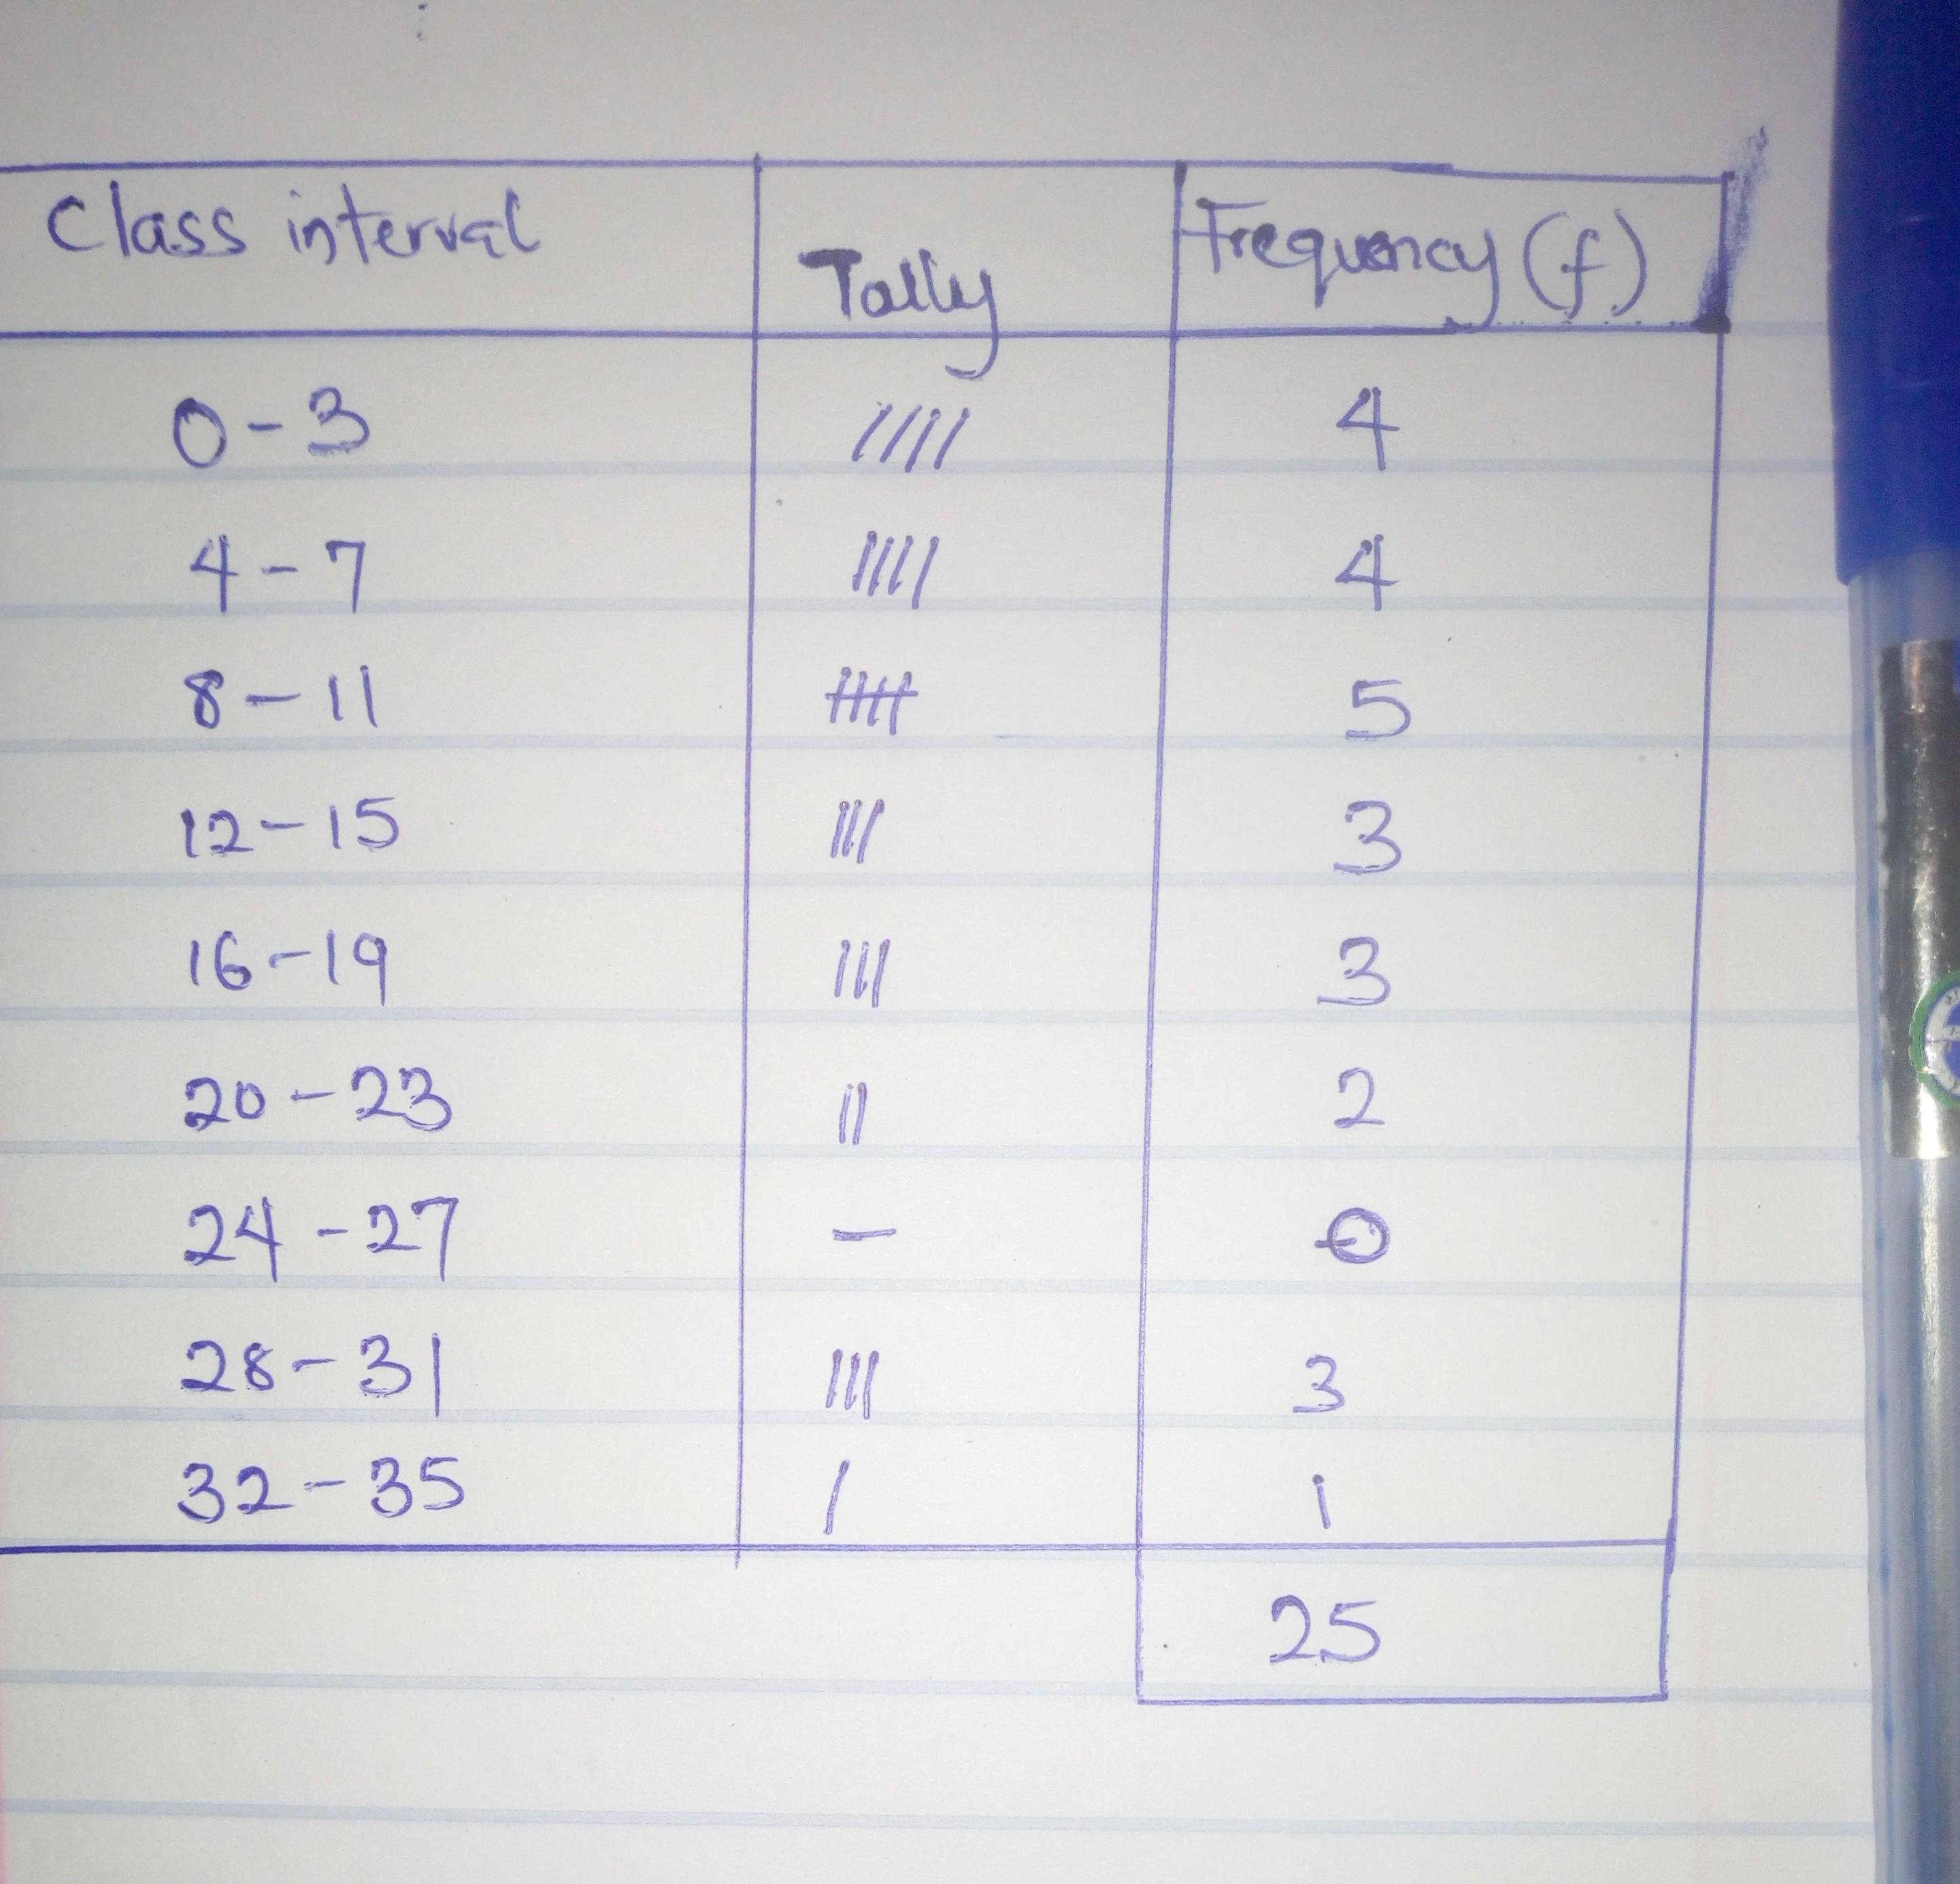 Class interval Tally Frequency (f)
0 - 3 //// 4
4 - 7 //// 4
8 - 11 ~~////~~ 5
12 - 15 /// 3
16 - 19 /// 3
20 - 23 // 2
24 - 27 - 0
28 - 31 /// 3
32 - 35 / 1
25